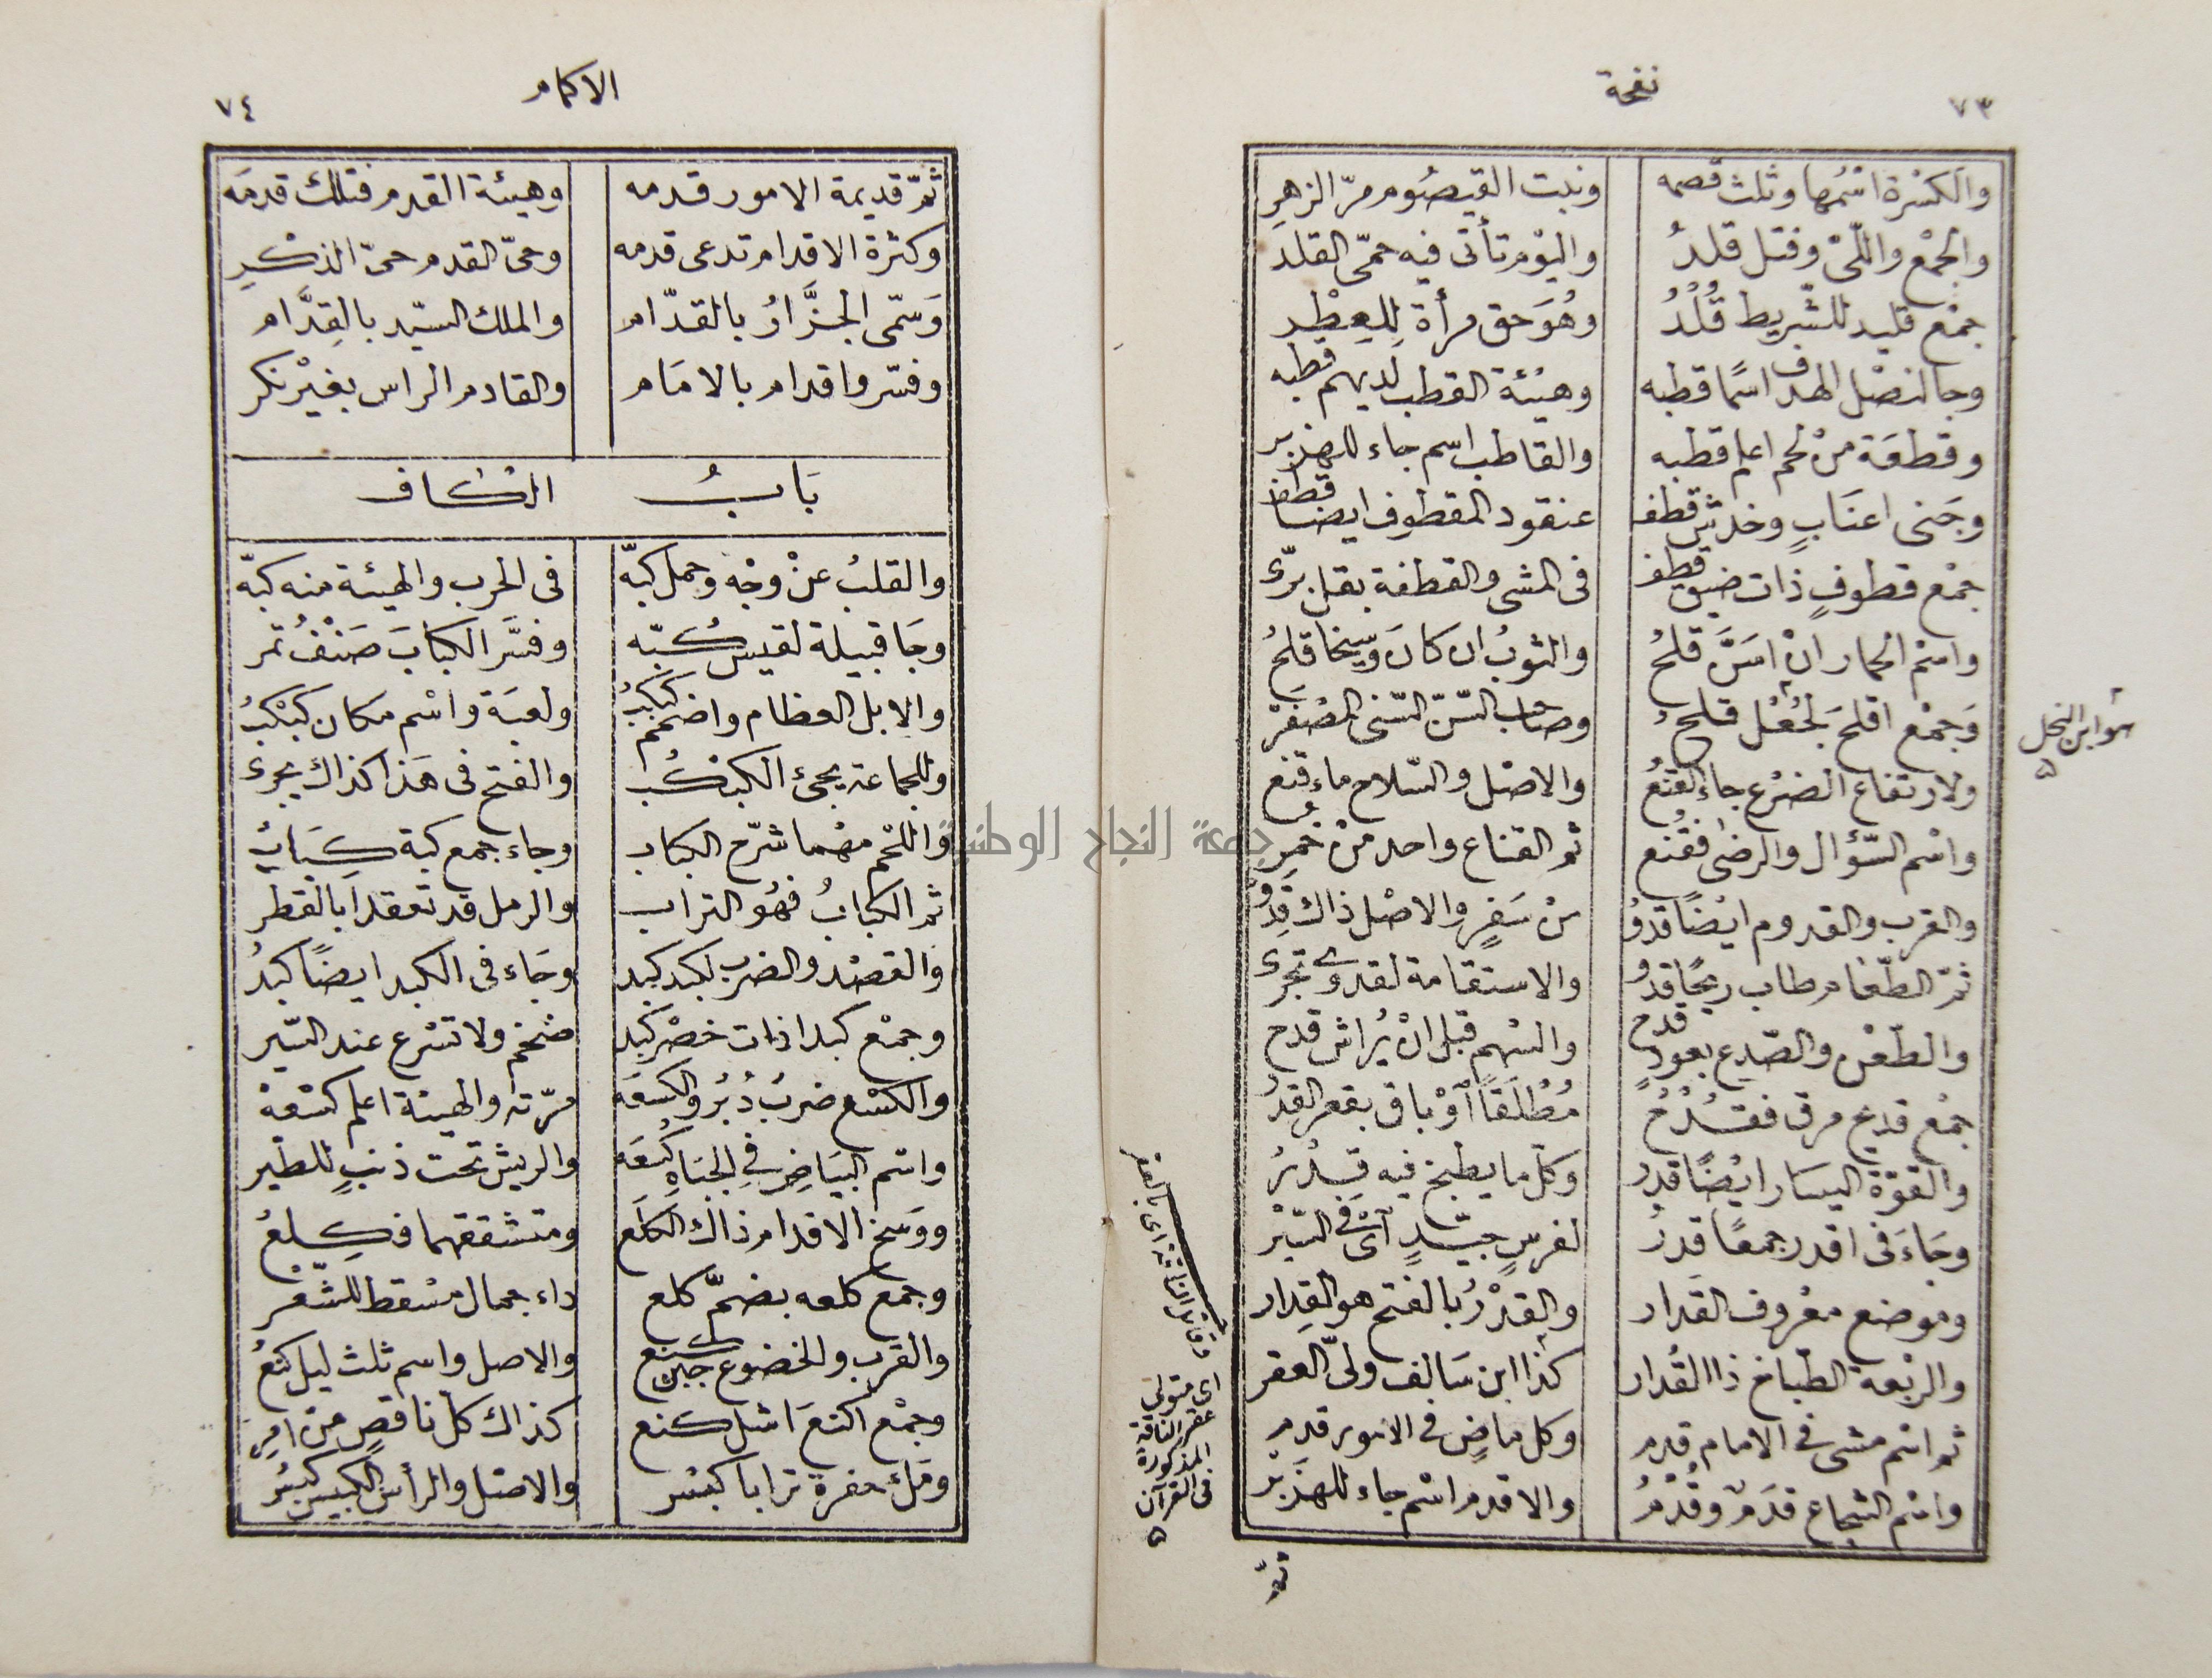 ٧٣
نفحة
والكسْرة اسْمُها وثلث قصمه ونبت القيصُوم مرّ الزهرِ
والجمْع واللّىْ وفتل قلدُ واليوْم تأتى فيه حمّى القلد
جمْع قليد للشّريط قُلُدُ وهُوَ حق مرأة لِلعِطْرِ
وجا لنصْل الهدف اسمًا قطبه وهيْئة القطب لديهم قطبه
وقطعَة منْ لحم اعلم قطبه والقاطب اسم جاء للهزبر
وجَنى اعنَابٍ وخدش قطف عنقود المقطوف ايضا قطف
جمْع قطوفٍ ذات ضيق قطف فى المشى والقطفة بقل برّى
واسْم الحمار انْ اسَنَّ قلحُ والثوبُ ان كان وسِخا قلحُ
وَجمْع اقلحَ لجُعُل قلحُ وصاحب السّنّ السّنى المصْفَرّ
ولارتفاع الضرْع جاء القنعُ والاصْل والسّلاح ماء قنع
واسْم السّؤال والرضى فقُنع ثم القناع واحد منْ خُمرِ
والقرب والقدوم ايضًا قدوُ منْ سَفرٍ والاصْل ذاك قِدوُ
ثمّ الطّعَام طاب ريحًا قدو والاستقامة لقدوٍ تجرى
والطّعْن والصّدع بعودٍ قدح والسْهم قبل انْ يُراش قدح
جمْع قديح مرق فقُدُحُ مُطْلَقًا اَوْ باق بقعر القدرُ
والقوّة اليسَار ايْضًا قدر وكلّ ما يطبخ فيه قِدْرُ
وجَاءَ فى اقدر جمعًا قدرُ لفرسٍ جيّدٍ اَىْ فى السّيْر
وموضع معْروف القَدار والقدْرُ بالفتح هو القِدار
والربْعة الطبّاخ ذا القُدار كذا ابن سَالف ولىّ العقر
ثم اسْم مشى فى الامام قدم وكل مَاضٍ فى الامور قدم
واسْم الشجاع قدَمٌ وقُدْمُ والاقدم اسْم جاء للهزَبْر
هو ابن النحل
اى متولى
عقر الناقة
المذكورة
فى القرآن
ثمّ
٧٤
الاكمام
ثمّ قديمة الامور قدمه وهيئة القدم فتلك قدمَه
وكثرة الاقدام تدعى قدمه وحىّ القدم حىّ الذكْرِ
وَسمّى الجزَّارُ بالقدّام والملك السيّد بالقِدَّام
وفسّروا قدام بالامَام والقادم الراس بغيْر نكر
بَابُ الكاف
والقلبُ عنْ وجْه وحمل كبّه فى الحرب والهيئة منه كبّه
وجَا قبيلة لقيس كُبّه وفسَّر الكبابَ صَنْفُ تمر
والابل العظام واضمم كبْكبُ ولعبَة واسْم مكان كبْكبُ
وللجماعة يجئ الكبكبُ والفتح فى هَذا كذاك يجرى
واللحْم مهْما شرّح الكباب وجاء جمع كبة كِبَابُ
ثم الكبابُ فهُو التراب والرمل قد تعقدا بالقطر
والقصْد والضرب لكبد كبد وجَاء فى الكبد ايضًا كبدُ
وجمْع كبدا ذات خصْر كبد ضخم ولا تسْرع عند السّير
والكسْع ضربُ دُبُر والكسعَه مرّته والهيئة اعلم كسْعهْ
واسْم البيَاض فى الجباهِ كسْعَه والريش تحت ذنبٍ للطّير
ووَسخ الاقدام ذاك الكلَع ومتشققهما فكِلعُ
وجمع كلعه بضمّ كلع داء جمال مسْقط للشّعْر
والقرب والخضوع جبن كنع والاصل واسم ثلث ليل كنعُ
وجمْع اكنعَ اشل كنع كذاك كلّ ناقصٍ منْ امرِ
ومَلْ‏ء حفرة ترابا كبْسر والاصْل والرأس الكبير كبْسُر